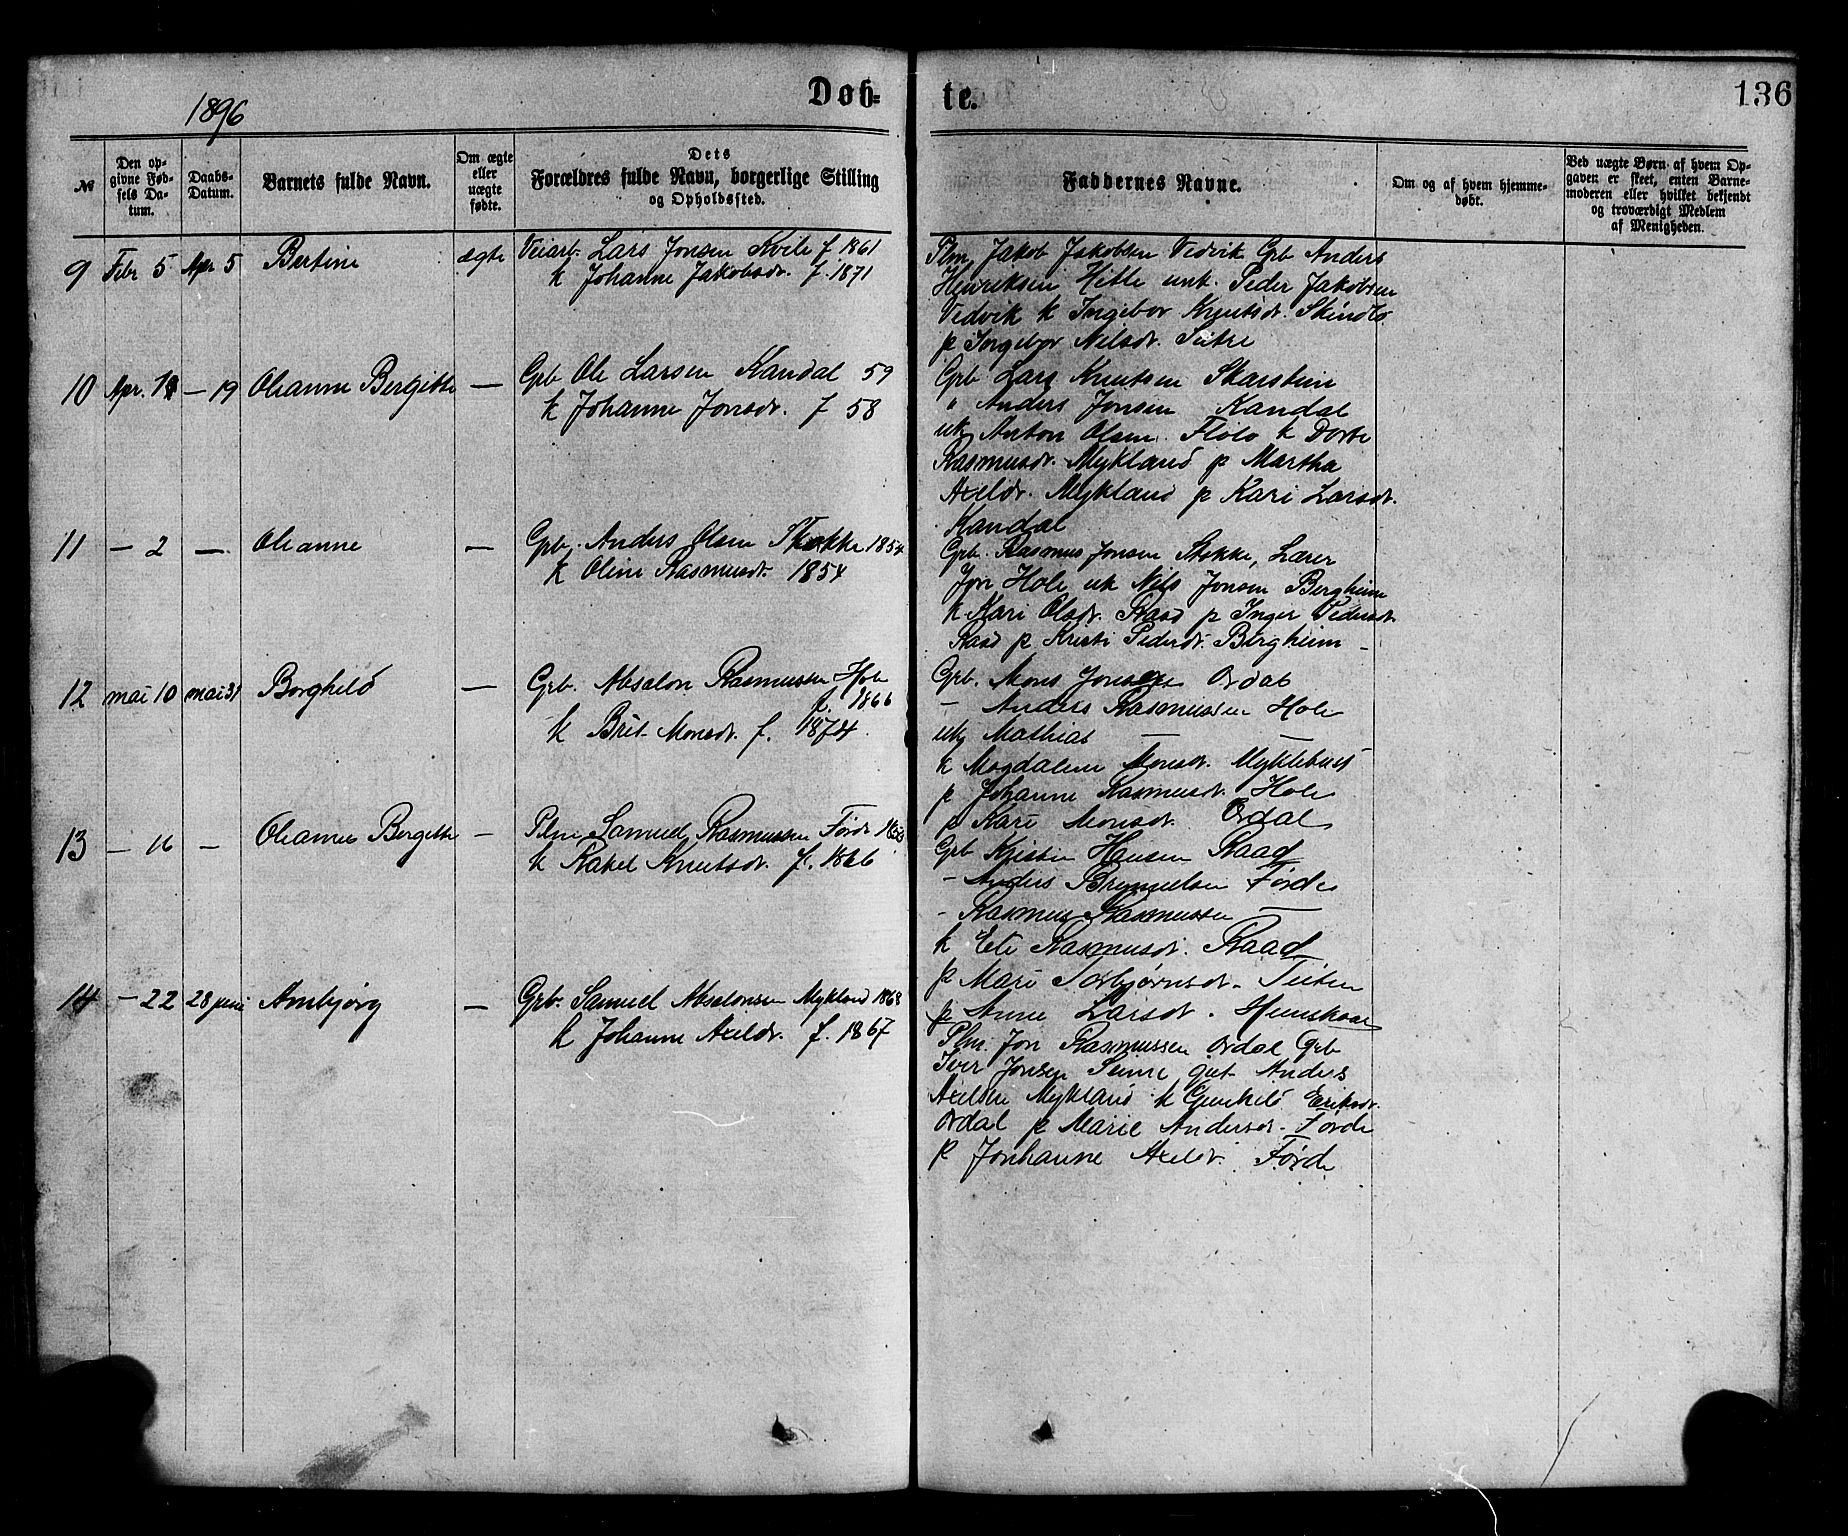 1896
Døb-
te.
136
№
Den op-
givne Fød-
sels Da-
tum.
Daabs-
Datum.
Barnets fulde Navn.
Om ægte
eller
uægte
fødte.
Dets
Forældres fulde Navn, borgerlige Stilling
og Opholdssted.
Faddernes Navne.
Om og af hvem hjemme-
døbt.
Ved uægte Børn af hvem Op-
gaven er skeet, enten Barne-
moderen eller hvilket bekjendt
og troværdigt Medlem
af Menigheden.
9 Febr 5 Apr 5 Bertine ægte Veiarb. Lars Jonsen Kvile f 1861
k Johanne Jakobsdr. f. 1871
Plm Jakob Jakobsen Vedvik Grb Anders
Henriksen Hitle unk. Peder Jakobsen
Vedvik k Ingebor Knutsdr.
p Ingebor Nilsdr. Sætre
10 Apr. — 19 Oleanne Bergitte — Grb Ole Larsen Kandal 59
k Johanne Jonsdr. f 58
Grb Lars Knutsen Skarstein
" Anders Jonsen Kandal
uk Anton Olsen Flølo k Dorte
Rasmusdr. Mykland p Martha
Axeldr. Mykland p Kari Larsdr.
Kandal
11 — 2 — Oleanne — Grb. Anders Olsen Stokke 1854
k Oline Rasmusdr. 1854
Grb. Rasmus Jonsen Stokke, Lærer
Jon Hole uk Nils Jonsen Bergheim
k Kari Olsdr. Raad p Inger Pedersdr.
Raad p Kristi Pedersdr. Bergheim —
12 mai 10 mai 31 Borghild — Grb. Absalon Rasmussen Hole
f. 1866
k Brit Monsdr. f. 1874.
Grb. Mons Jonsen Ordal
— Anders Rasmussen Hole
uk Mathias — —
k Magdalene Monsdr. Myklebust
p Johanne Rasmusdr. Hole
p Kari Monsdr. Ordal
13 — 16 — Oleanne Bergitte — Plm Samuel Rasmussen Førde
k Rakel Knutsdr. f. 1866
Grb Kristen Hansen Raad
— Anders Brynielsen Førde
- Rasmus Rasmussen —
k Eli Rasmusdr. Raad
p Mari Torbjørnsdr.
p Anne Larsdr.
14 — 22 28 juni Ambjørg — Grb. Samuel Absalonsen Mykland 1868
k Johanne Axeldr. f. 1867
Plm. Jon Rasmussen Ordal Grb
Iver Jonsen Seime gut Anders
Axelsen Mykland k Gunhild Eriksdr.
Ordal p Marie Andersdr. Førde
p Jonhanne Axeldr. Førde